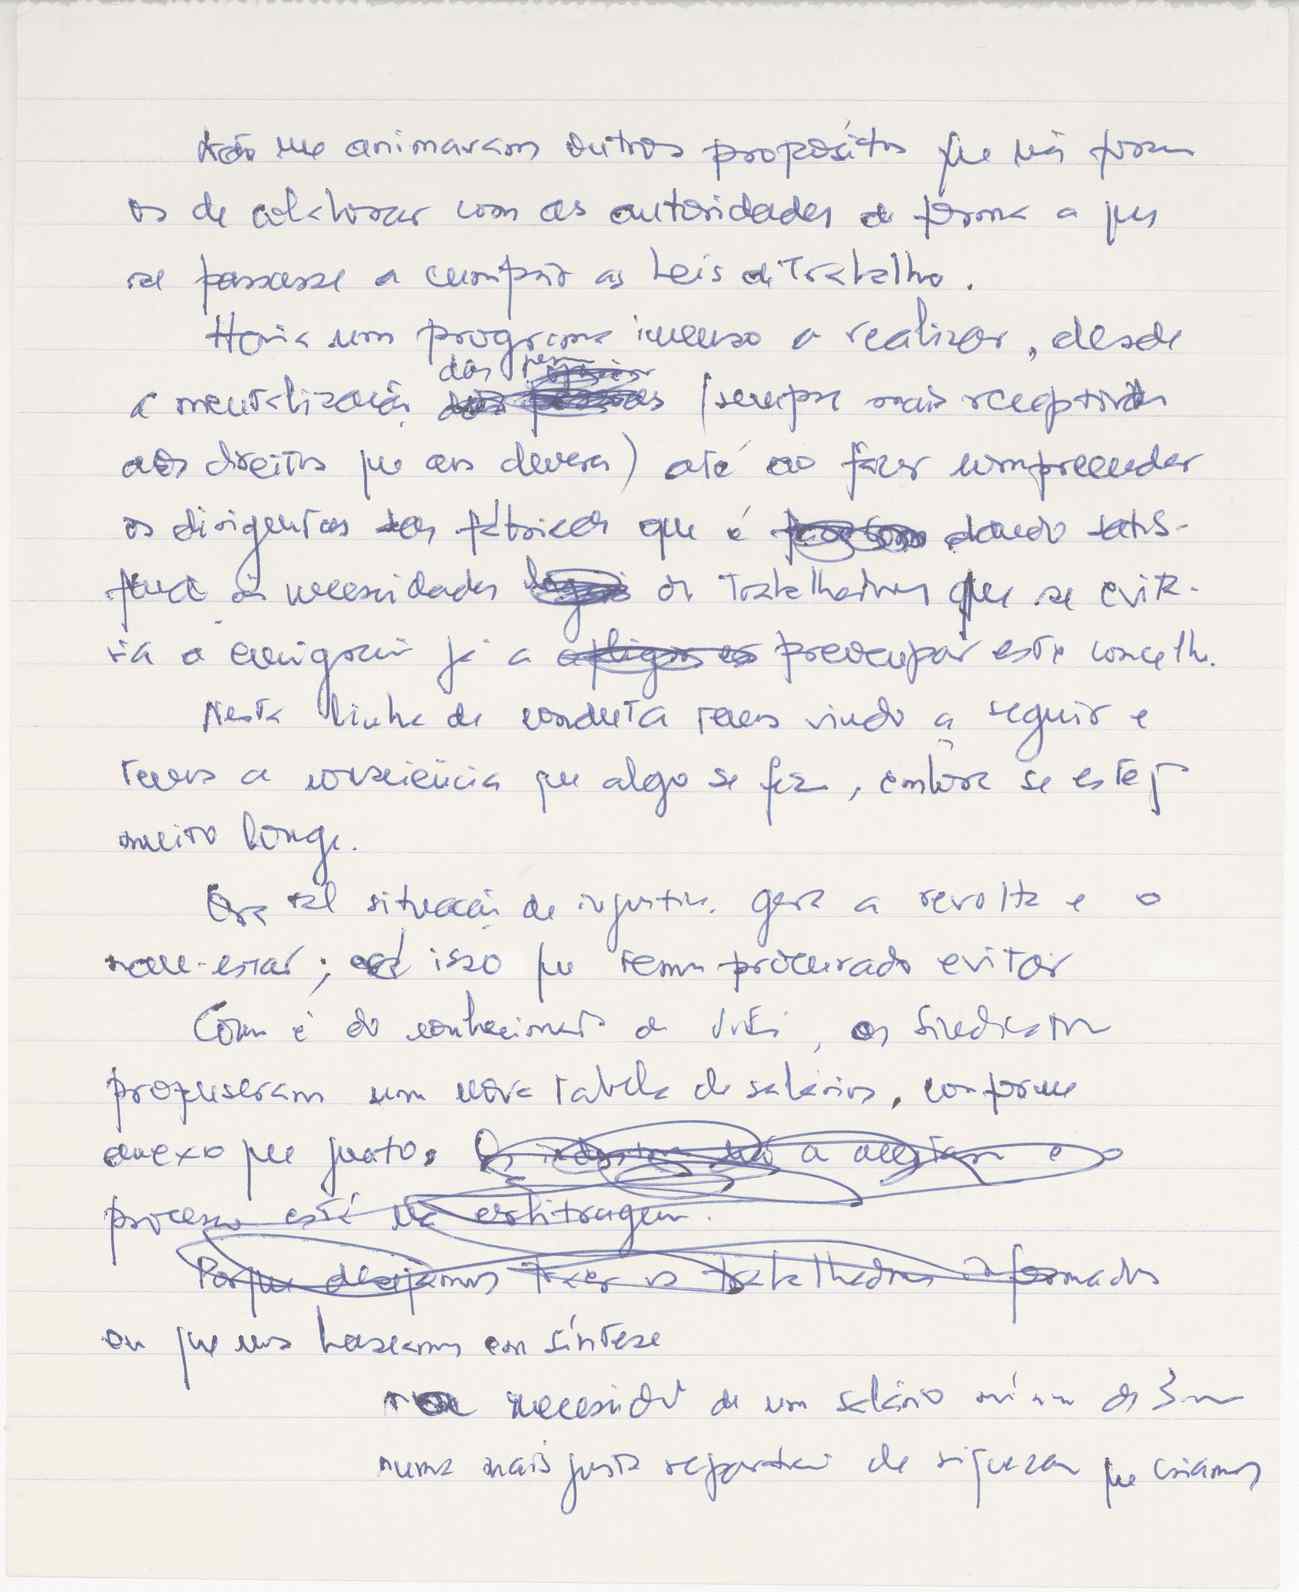 Não me animaram outros propósitos que não foram
os de colaborar com as autoridades de forma a que
se passasse a cumprir as Leis de Trabalho.
Havia um programa imenso a realizar, desde
a mentalização das (sempre mais receptivas
aos direitos que aos deveres) até ao fazer compreender
os dirigentes das fábricas que é dando satis-
fação às necessidades dos Trabalhadores que se evita-
ria a emigração já a preocupar este concelho.
Nesta linha de conduta temos vindo a seguir e
temos a consciência que algo se fez, embora se esteja
muito longe.
Ora tal situação de injustiça gera a revolta e o
mau-estar; é isso que temos procurado evitar
Como é do conhecimento de V. , os Sindicatos
propuseram uma nova tabela de salários, conforme
anexo que junto. Os industriais não a aceitaram e o
processo está na arbitragem.
Porque desejamos trazer os trabalhadores informados
em que nos baseamos em síntese
na necessidade de um salário mínimo de
numa mais justa repartição de riquezas que criamos